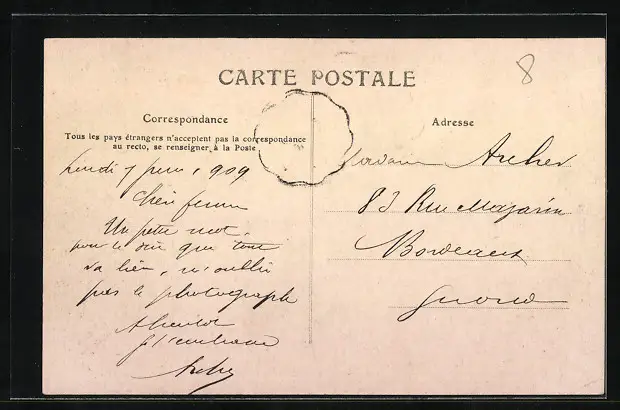 8
CARTE POSTALE
Correspondance
Tous les pays étrangers n'acceptent pas la correspondance
au recto, se renseigner à la Poste
Lundi 7 juin 1909
Chère femme
Un petit mot
pour te dire que tout
va bien, n'oublie
pas le photograph
A bientôt
je t'embrasse
Adresse
Madame Archer
83 Rue Mazarin
Bordeaux
Gironde